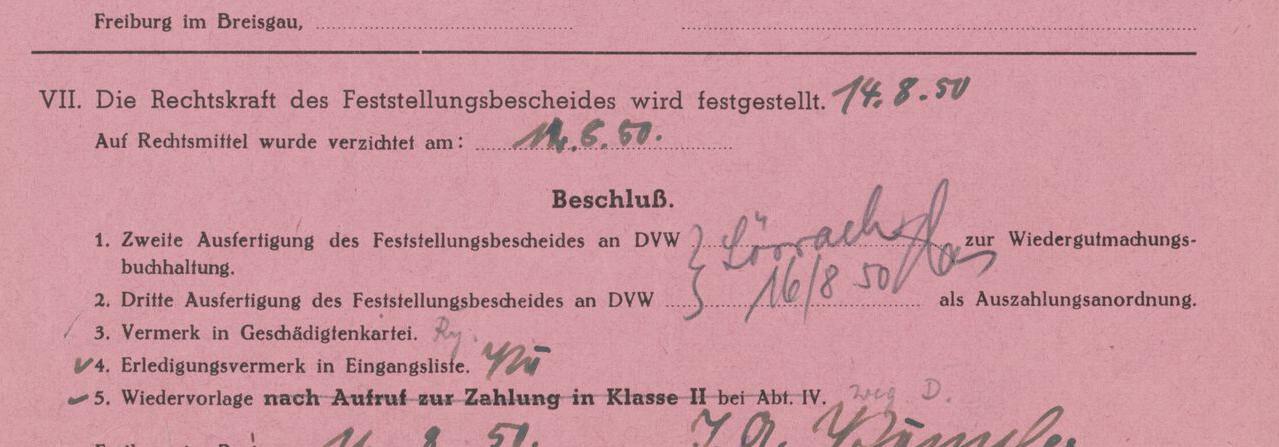 Freiburg im Breisgau,
VII. Die Rechtskraft des Feststellungsbescheides wird festgestellt. 14.8.50
Auf Rechtsmittel wurde verzichtet am: 14.6.50.
Beschluß.
1. Zweite Ausfertigung des Feststellungsbescheides an DVW } Lörrach zur Wiedergutmachungs-
buchhaltung. 16/8 50
2. Dritte Ausfertigung des Feststellungsbescheides an DVW als Auszahlungsanordnung.
3. Vermerk in Geschädigtenkartei.
✓ 4. Erledigungsvermerk in Eingangsliste.
5. Wiedervorlage nach Aufruf zur Zahlung in Klasse II bei Abt. IV.